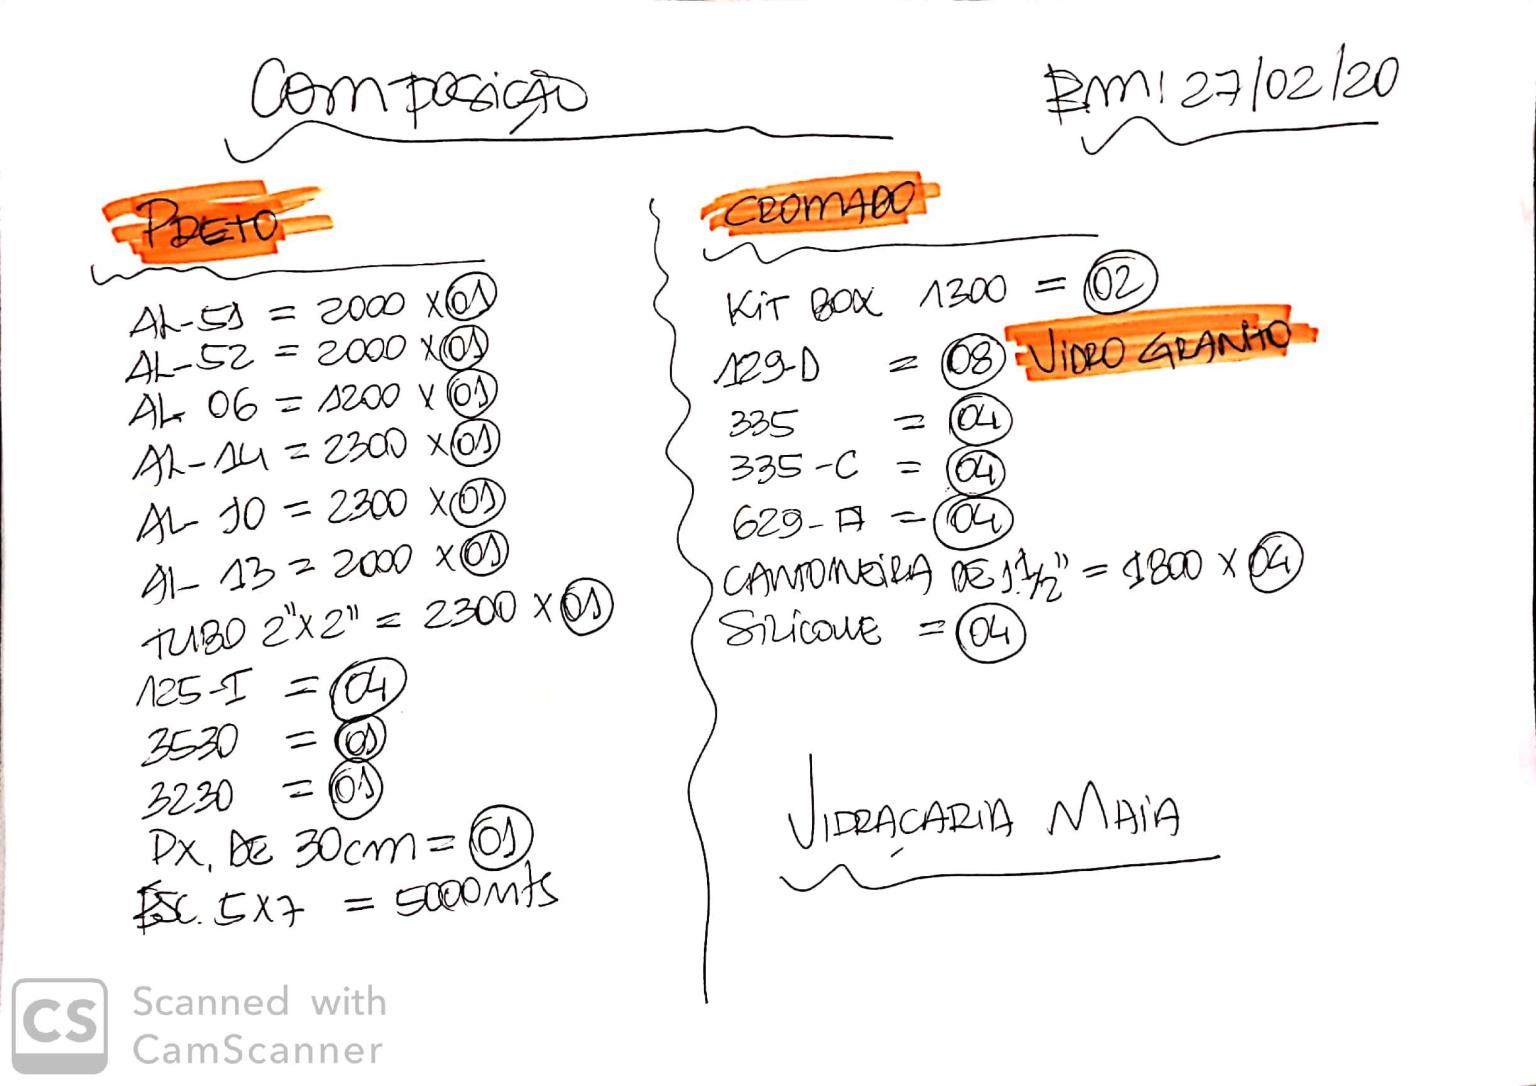 Composição
BM: 27/02/20
PRETO
AL-51 = 2000 x 01
AL-52 = 2000 x 01
AL 06 = 1200 x 01
AL-14 = 2300 x 01
AL- 10 = 2300 x 01
AL- 13 = 2000 x 01
TUBO 2"x2" = 2300 x 01
125-I = 04
3530 = 01
3230 = 01
PX. DE 30cm = 01
ESC. 5x7 = 5000 mts
CROMADO
KIT BOX 1300 = 02
129-D = 08 VIDRO GRANITO
335 = 04
335-C = 04
629-A = 04
CANTONEIRA DE 1.1/2" = 1800 x 04
SILICONE = 04
VIDRAÇARIA MAIA
CS Scanned with
CamScanner